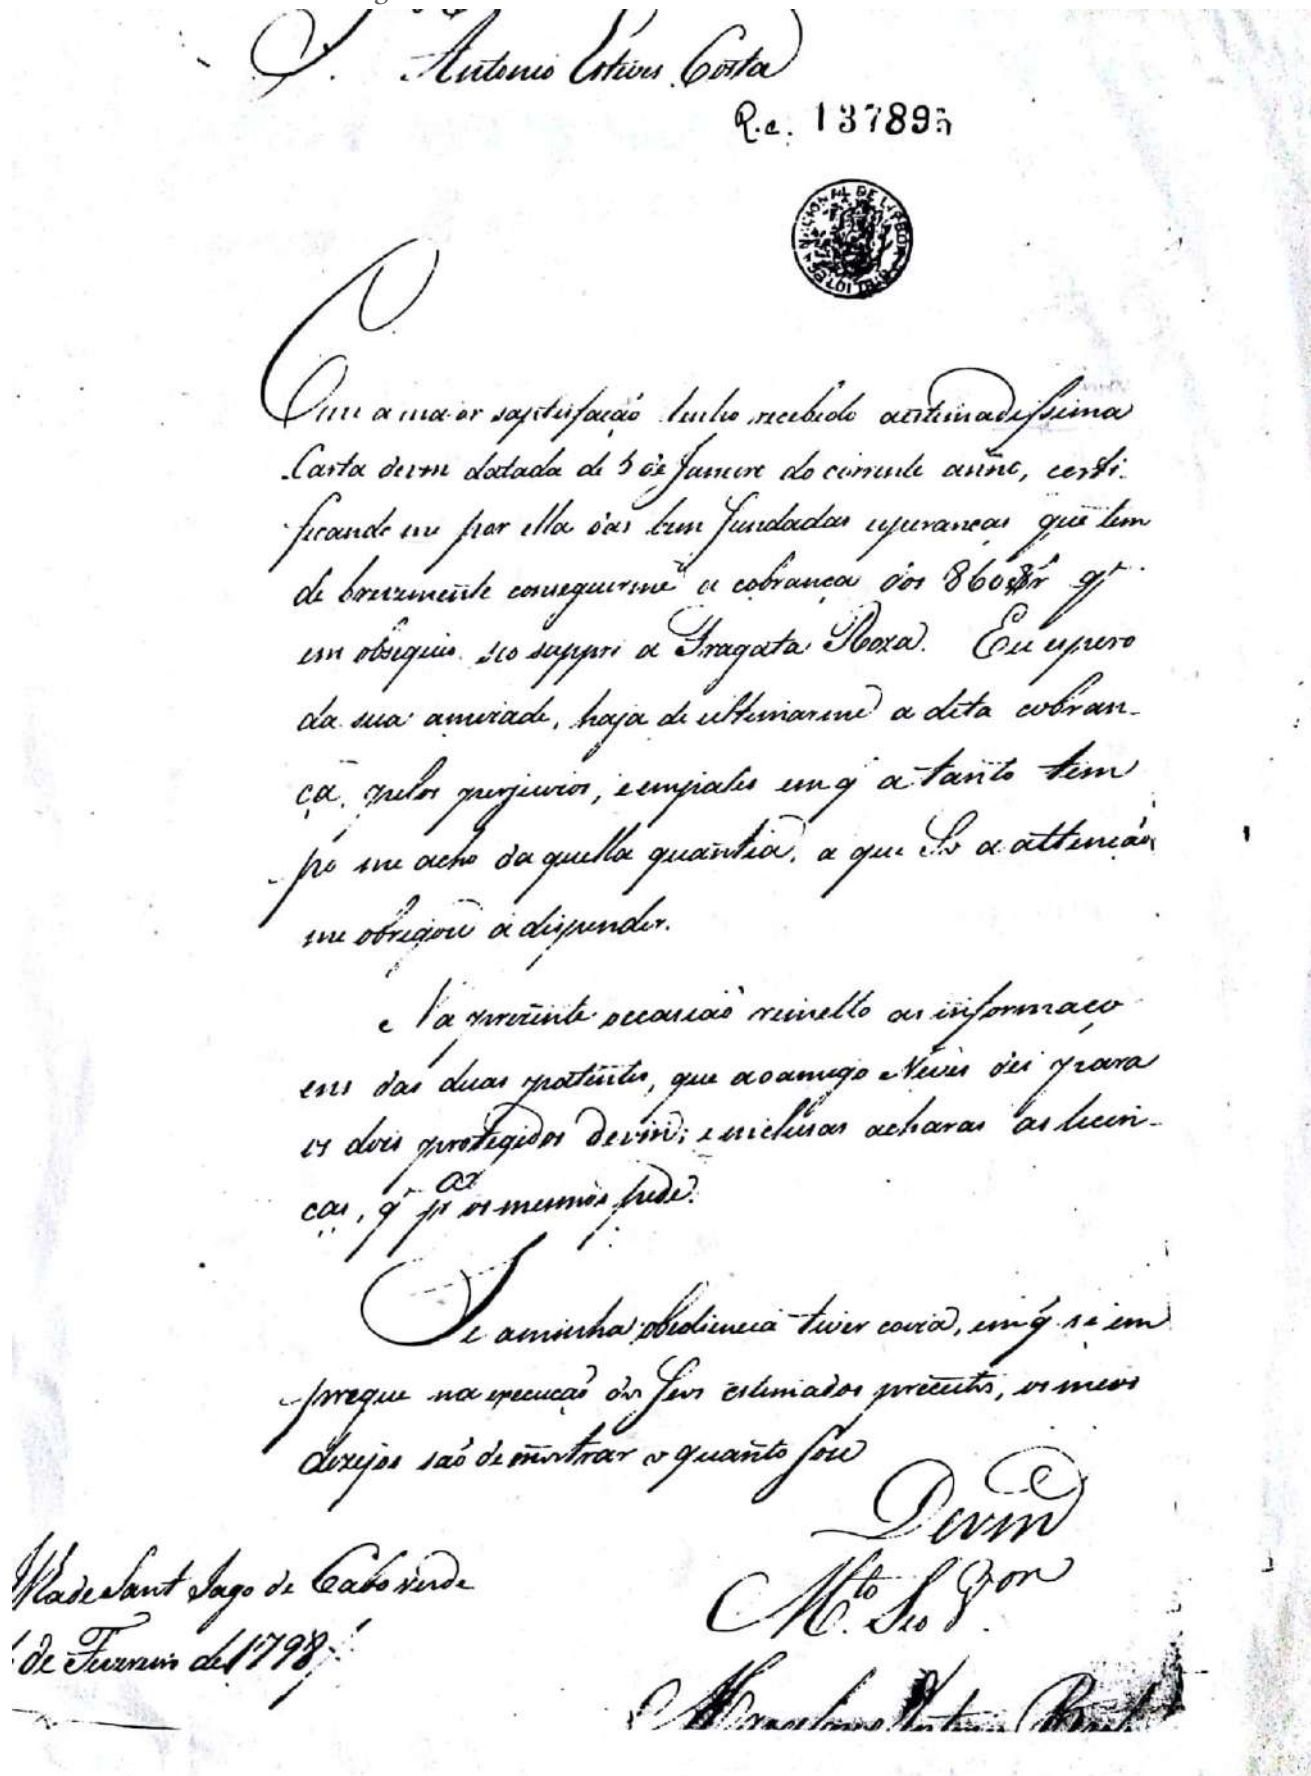 S.r Antonio Esteves Costa
R.c. 137895
BIBLIOTECA NACIONAL DE LISBOA
Com a maior saptisfação tenho recebido a estimadissima
Carta devm datada de 5 de Janeiro do corrente anno, certi-
ficando me por ella das bem fundadas esperanças que tem
de brevemente conseguirme a cobrança dos q.e
em obzequio seo suppri a Fragata Roza. Eu espero
da sua amizade, haja de ultimarme a dita cobran-
ça, pelos prejuizos, e empates em q̃ a tanto tem
po me acho daquella quantia, a que So a attenção
me obrigou a dispender.
Na prezente occazião remetto as informaço
ens das duas patentes, que ao amigo Neves dei para
os dois protegidos devm; e incluzas achara as licen-
ças, q̃ p.a os mesmos pede.
Se a minha obediencia tiver couza, em q̃ se em
pregue na execução dos Seus estimados preceitos, os meus
dezejos são de mostrar o quanto Sou
Devm
M.to Seo V.or
Ilha de Sant Iago de Cabo verde
de Fevereiro de 1798
Marcelino Antonio